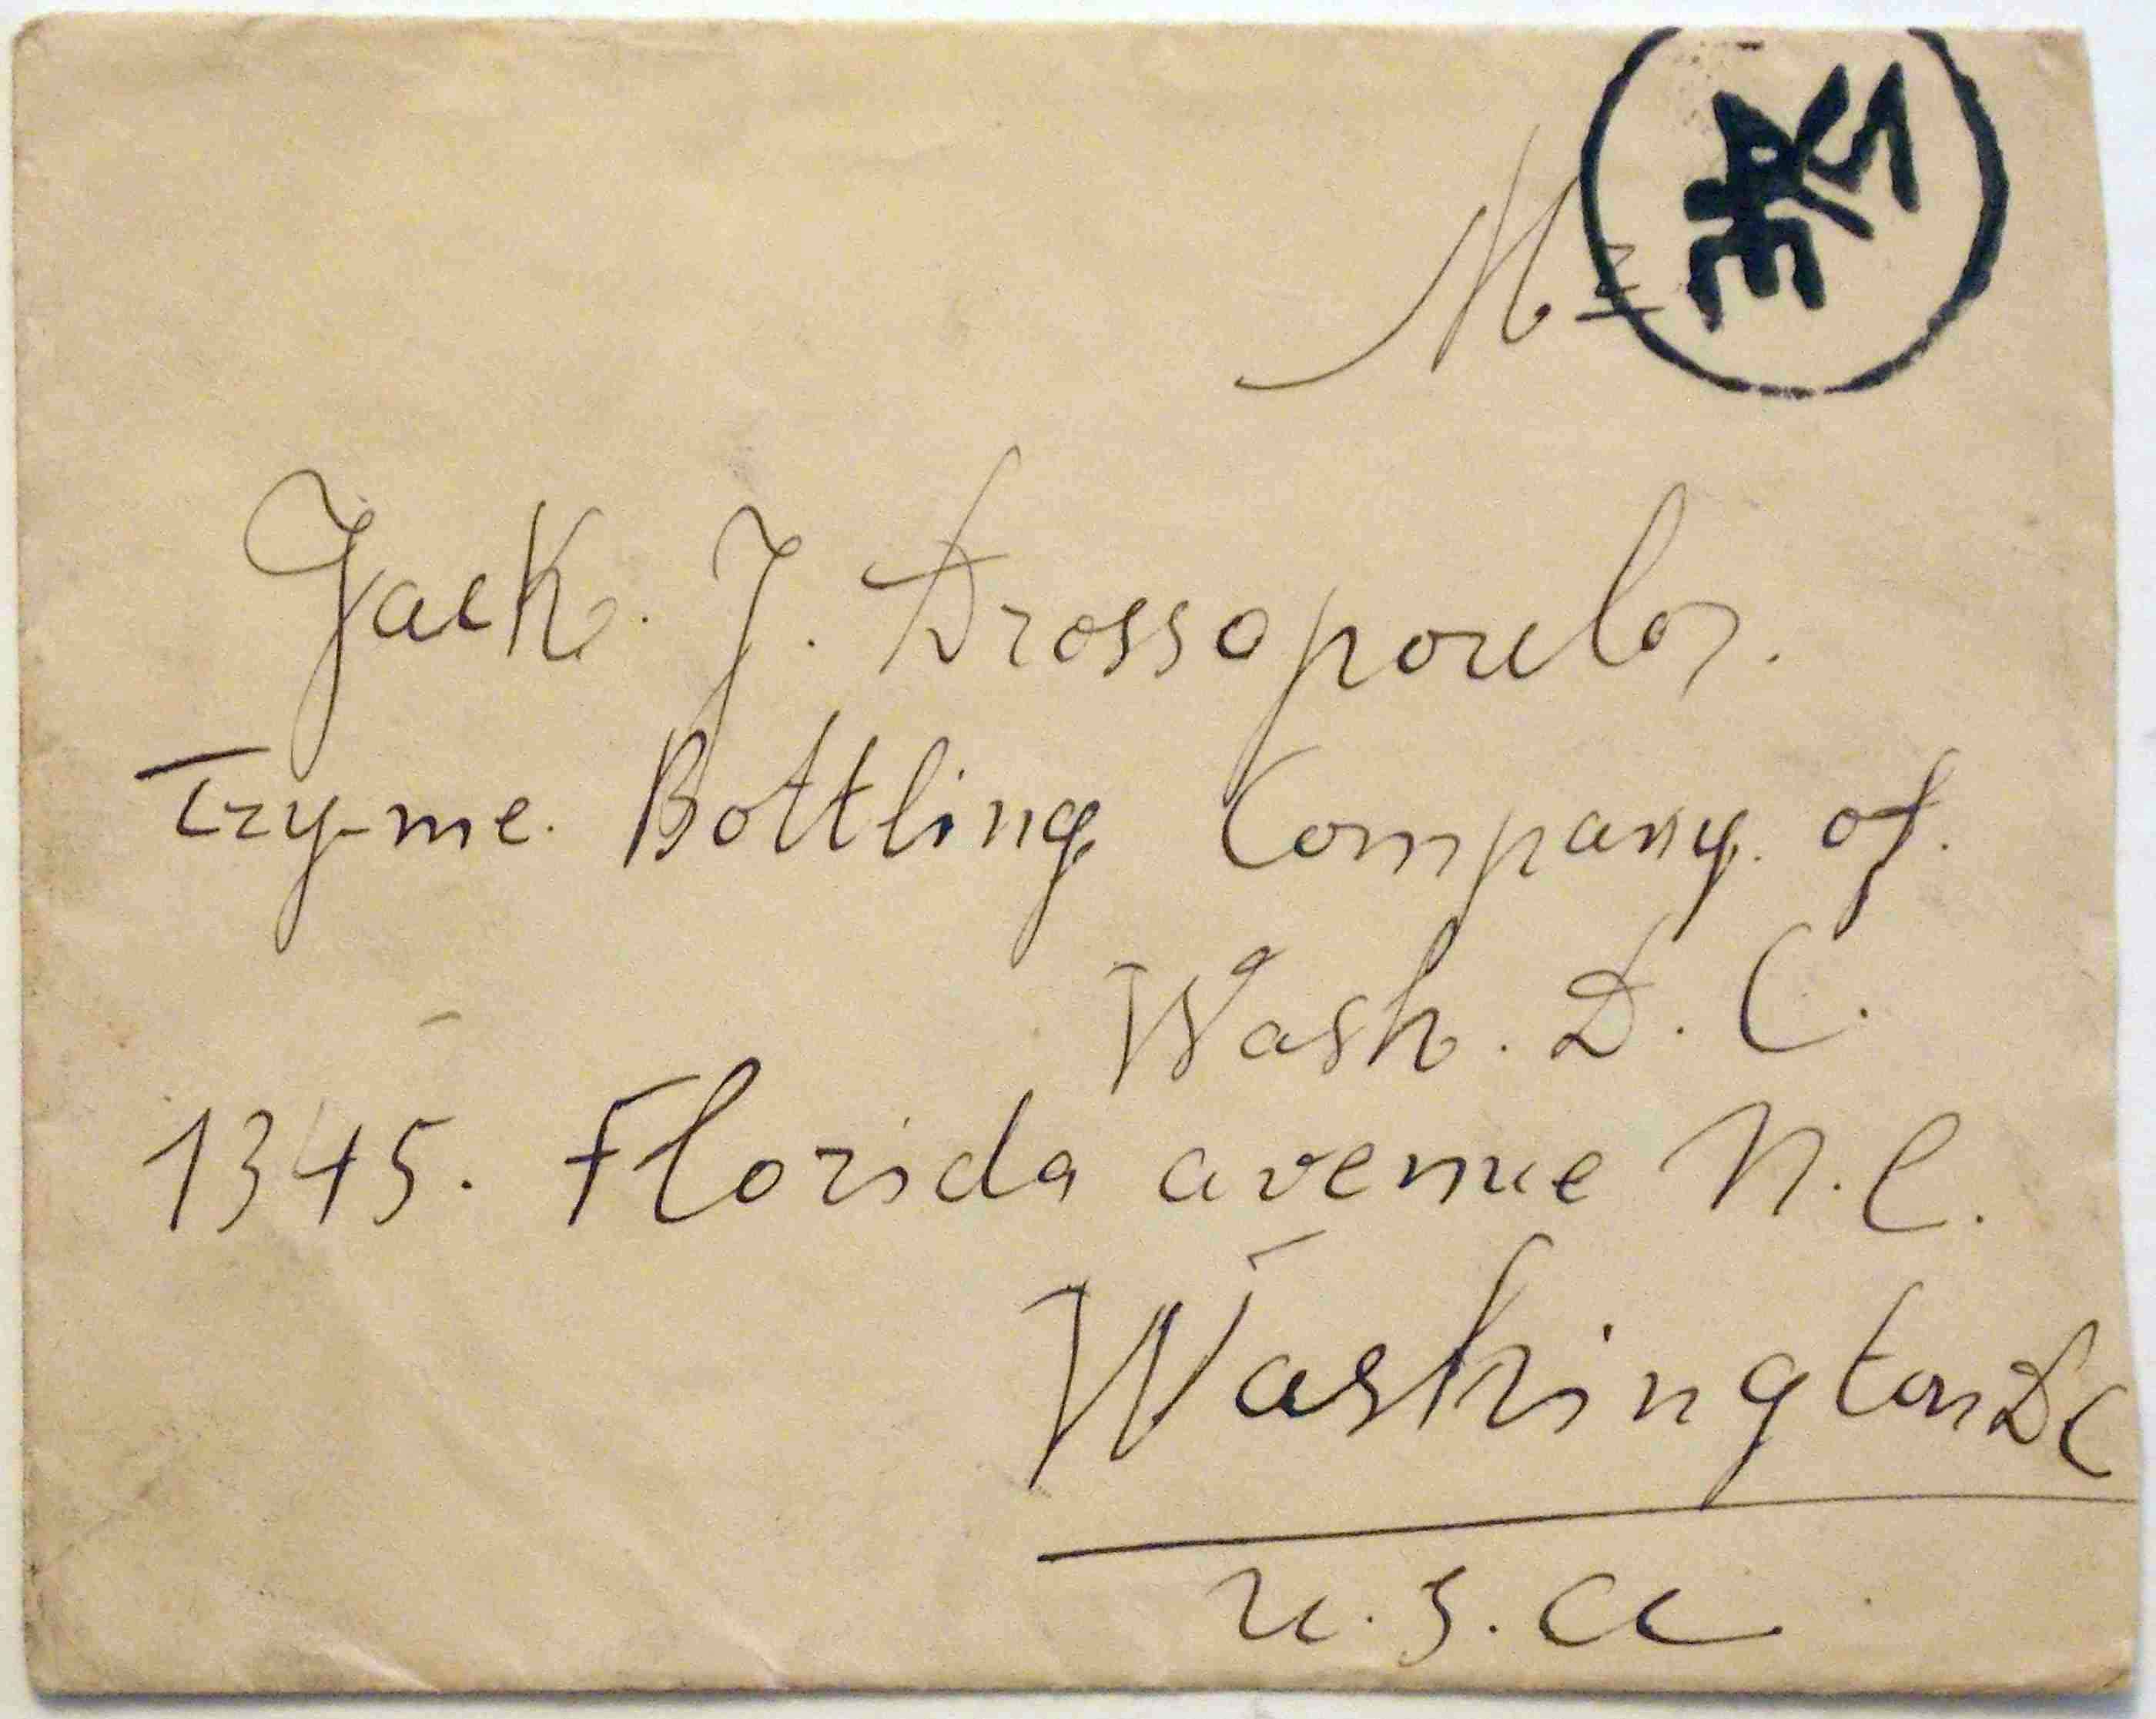 Mr
Jack. J. Drossopoulos.
Try-me. Bottling Company. of.
Wash. D. C.
1345. Florida avenue N. E.
Washington DC
U. S. a